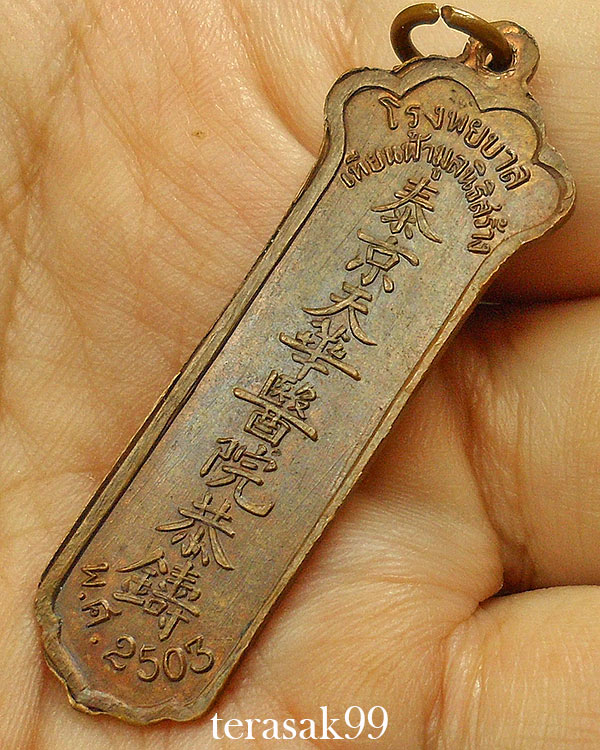 โรงพยาบาล
เทียนฟ้ามูลนิธิสร้าง
泰京天華醫院恭鑄
พ.ศ. 2503
terasak99